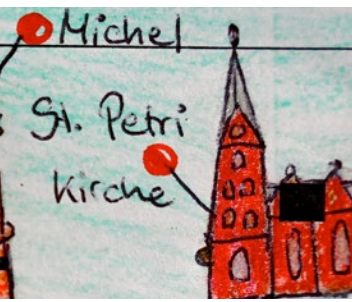 Michel
St. Petri
Kirche